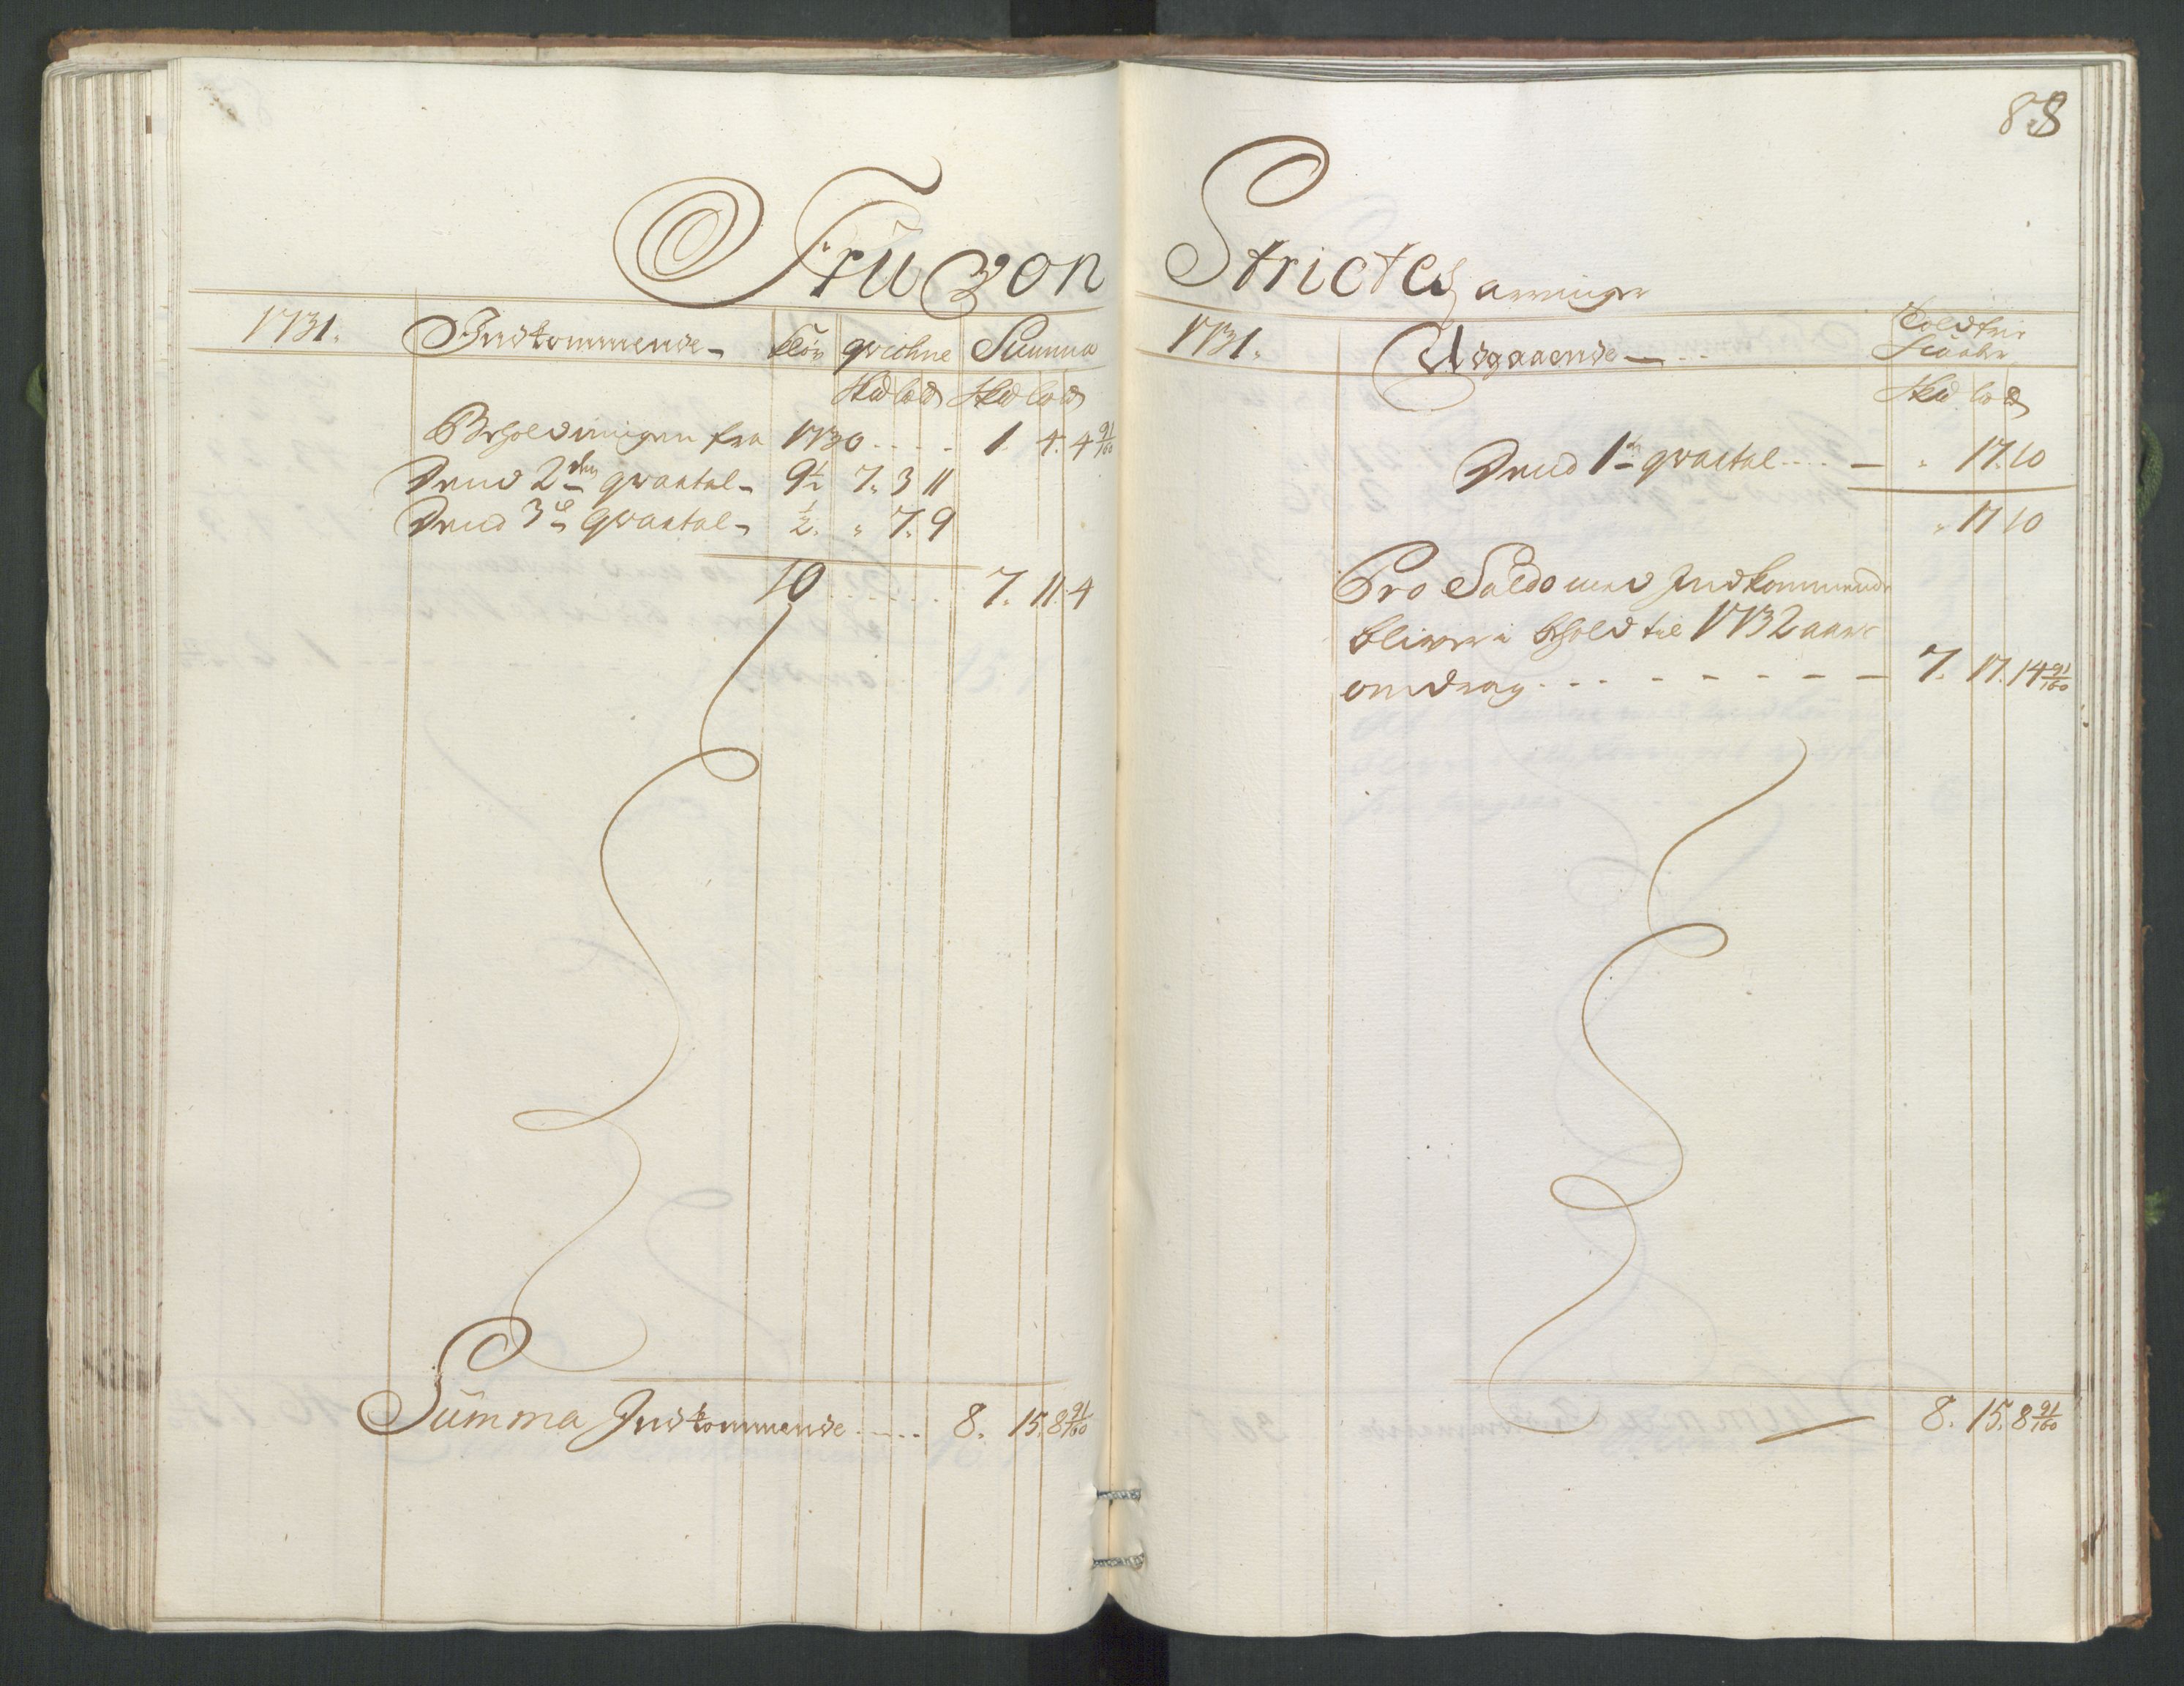 88
Frü von Strictes arvinger
1731. Indkommende - Kiör qvichne Summa
Skd lod Skd lod
Beholdningen fra 1730 .... 1. 4. 4 91/160
Dend 2den qvartal - 9½ 7. 3 11
Dend 3de qvartal - ½. " 7. 9
10 ...... 7. 11. 4
Summa Indkommende ..... 8. 15. 8 91/160
1731. Udgaaende - ..
Skd lod
Dend 1te qvartal .... - " 17. 10
" 17 10
Pro Saldo med Indkommende
bliver i behold til 1732 aars
omdrag . - - - - - - - 7. 17. 14 91/160
8. 15. 8 91/160